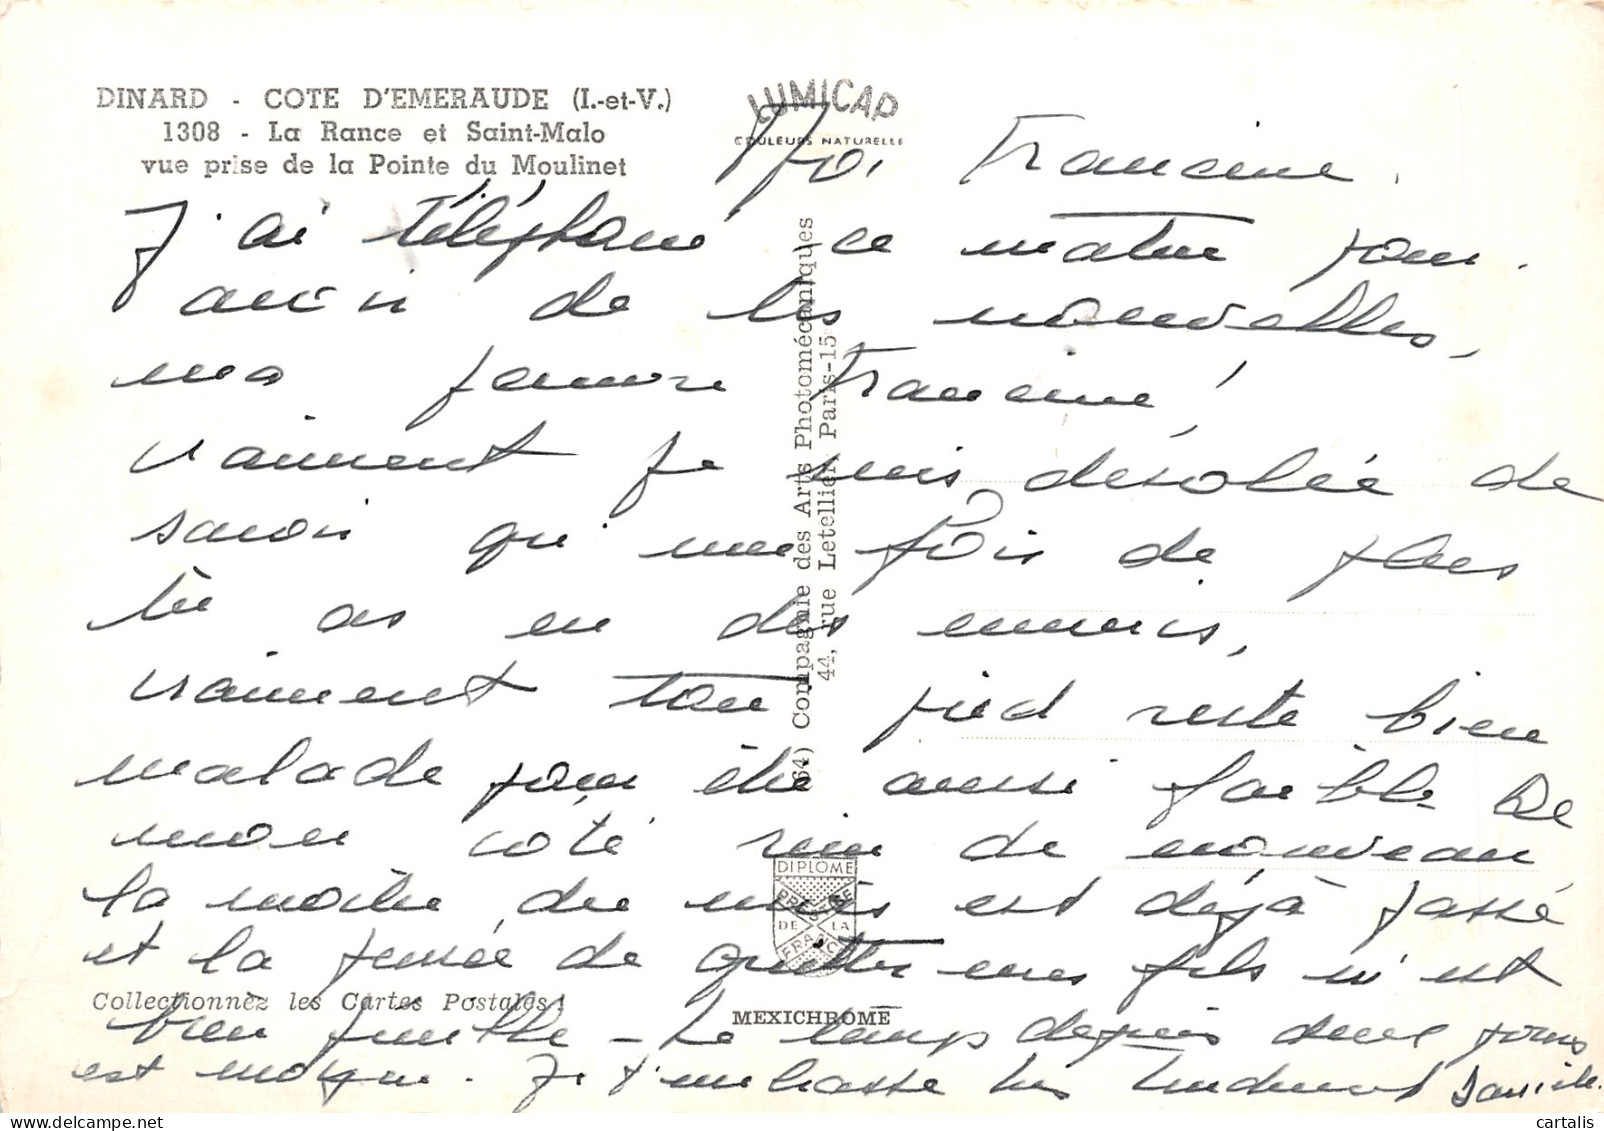 DINARD - COTE D'EMERAUDE (I.-et-V.)
1308 - La Rance et Saint-Malo
vue prise de la Pointe du Moulinet
LUMICAP
COULEURS NATURELLES
Francine.
J'ai téléphoné ce matin pour
avoir de tes nouvelles,
ma pauvre Francine!
vraiment je suis désolée de
savoir qu'une fois de plus
tu as eu des ennuis,
vraiment ton pied reste bien
malade pour être aussi faible De
mon côté rien de nouveau
la moitié du mois est déjà passé
et la pensée de quitter mes fils m'est
bien pénible - Le temps depuis deux jours
est moyen. Je t'embrasse très tendrement Danièle.
(64) Compagnie des Arts Photomécaniques
44, rue Letellier, Paris-15e
DIPLOME
PRESTIGE
DE LA
FRANCE
Collectionnez les Cartes Postales!
MEXICHROME
cartalis